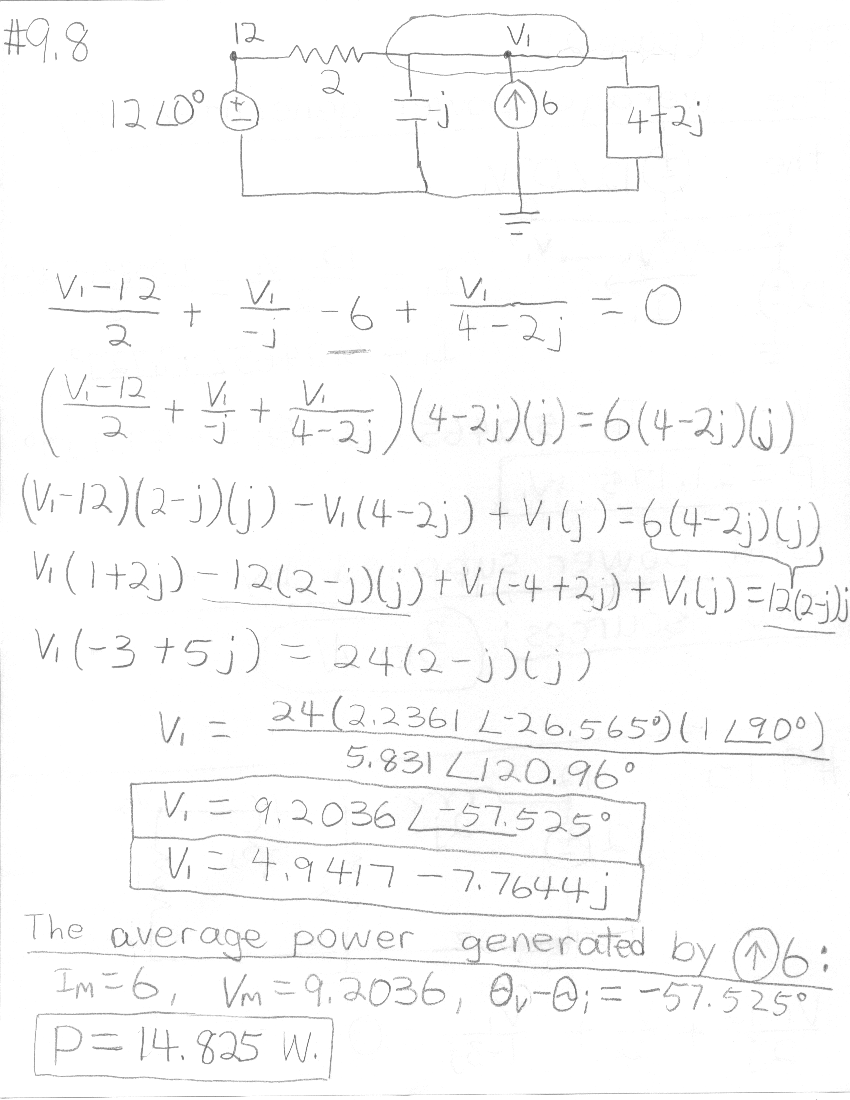 #9.8
12
V₁
2
12∠0°
+
−
-j
6
4-2j
(V₁-12)/2 + V₁/-j - 6 + V₁/(4-2j) = 0
((V₁-12)/2 + V₁/-j + V₁/(4-2j))(4-2j)(j) = 6(4-2j)(j)
(V₁-12)(2-j)(j) - V₁(4-2j) + V₁(j) = 6(4-2j)(j)
V₁(1+2j) - 12(2-j)(j) + V₁(-4+2j) + V₁(j) = 12(2-j)j
V₁(-3+5j) = 24(2-j)(j)
V₁ = 24(2.2361∠-26.565°)(1∠90°)/5.831∠120.96°
V₁ = 9.2036∠-57.525°
V₁ = 4.9417 - 7.7644j
The average power generated by ↑6:
Iₘ=6, Vₘ=9.2036, θᵥ-θᵢ=-57.525°
P=14.825 W.